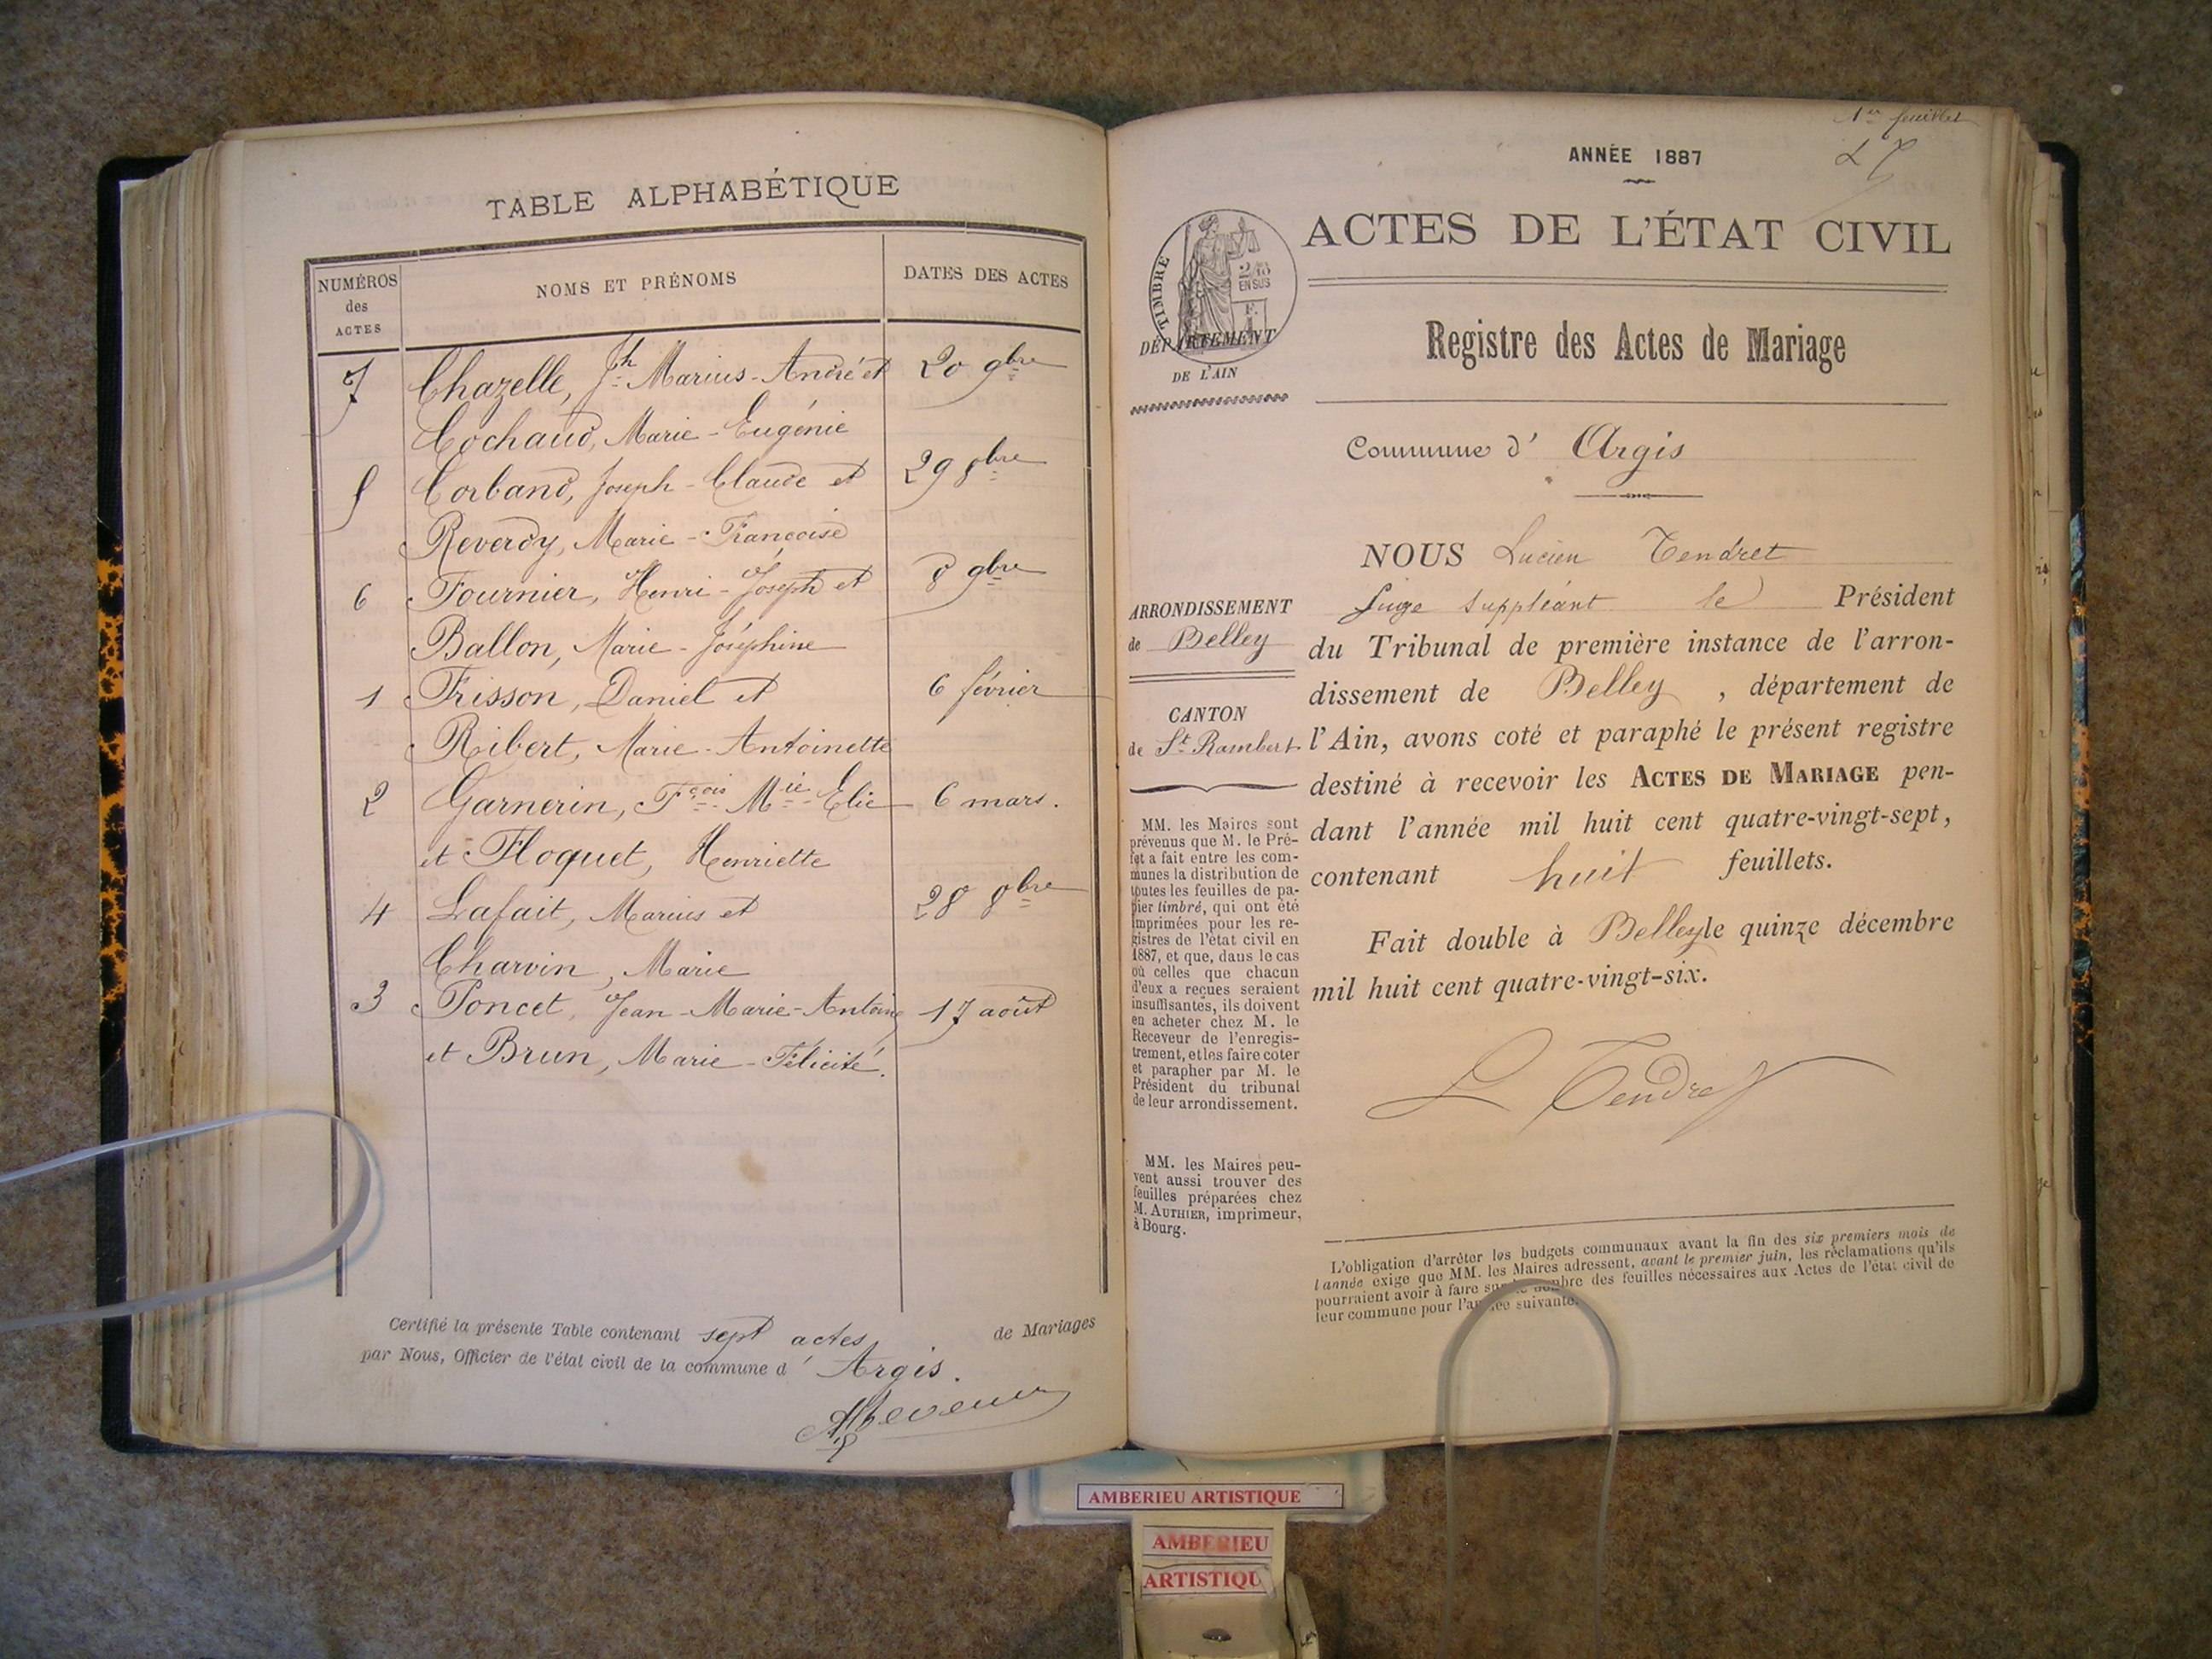 TABLE ALPHABÉTIQUE
NUMÉROS des ACTES
NOMS ET PRÉNOMS
DATES DES ACTES
7 Chazelle, Jh Marius-André et 20 9bre
Cochaud, Marie-Eugénie
5 Corband, Joseph-Claude et 29 8bre
Reverdy, Marie-Françoise
6 Fournier, Henri-Joseph et 8 9bre
Ballon, Marie-Joséphine
1 Frisson, Daniel et 6 février
Ribert, Marie-Antoinette
2 Garnerin, Fçois Mie Elie 6 mars.
et Floquet, Henriette
4 Lafait, Marius et 28 8bre
Charvin, Marie
3 Poncet, Jean-Marie-Antoine 17 août
et Brun, Marie-Félicité.
Certifié la présente Table contenant sept actes de Mariages
par Nous, Officier de l'état civil de la commune d' Argis.
1er feuillet
LT
ANNÉE 1887
ACTES DE L'ÉTAT CIVIL
TIMBRE
2/10
EN SUS
DÉPARTEMENT
DE L'AIN
Registre des Actes de Mariage
Commune d' Argis
NOUS Lucien Tendret
Juge suppléant le Président
du Tribunal de première instance de l'arron-
dissement de Belley, département de
l'Ain, avons coté et paraphé le présent registre
destiné à recevoir les ACTES DE MARIAGE pen-
dant l'année mil huit cent quatre-vingt-sept,
contenant huit feuillets.
Fait double à Belley le quinze décembre
mil huit cent quatre-vingt-six.
L Tendret
ARRONDISSEMENT
de Belley
CANTON
de St Rambert
MM. les Maires sont
prévenus que M. le Pré-
fet a fait entre les com-
munes la distribution de
toutes les feuilles de pa-
pier timbré, qui ont été
imprimées pour les re-
gistres de l'état civil en
1887, et que, dans le cas
où celles que chacun
d'eux a reçues seraient
insuffisantes, ils doivent
en acheter chez M. le
Receveur de l'enregis-
trement, et les faire coter
et parapher par M. le
Président du tribunal
de leur arrondissement.
MM. les Maires peu-
vent aussi trouver des
feuilles préparées chez
M. AUTHIER, imprimeur,
à Bourg.
L'obligation d'arrêter les budgets communaux avant la fin des six premiers mois de
l'année exige que MM. les Maires adressent, avant le premier juin, les réclamations qu'ils
pourraient avoir à faire sur le nombre des feuilles nécessaires aux Actes de l'état civil de
leur commune pour l'année suivante.
AMBERIEU ARTISTIQUE
AMBERIEU
ARTISTIQU